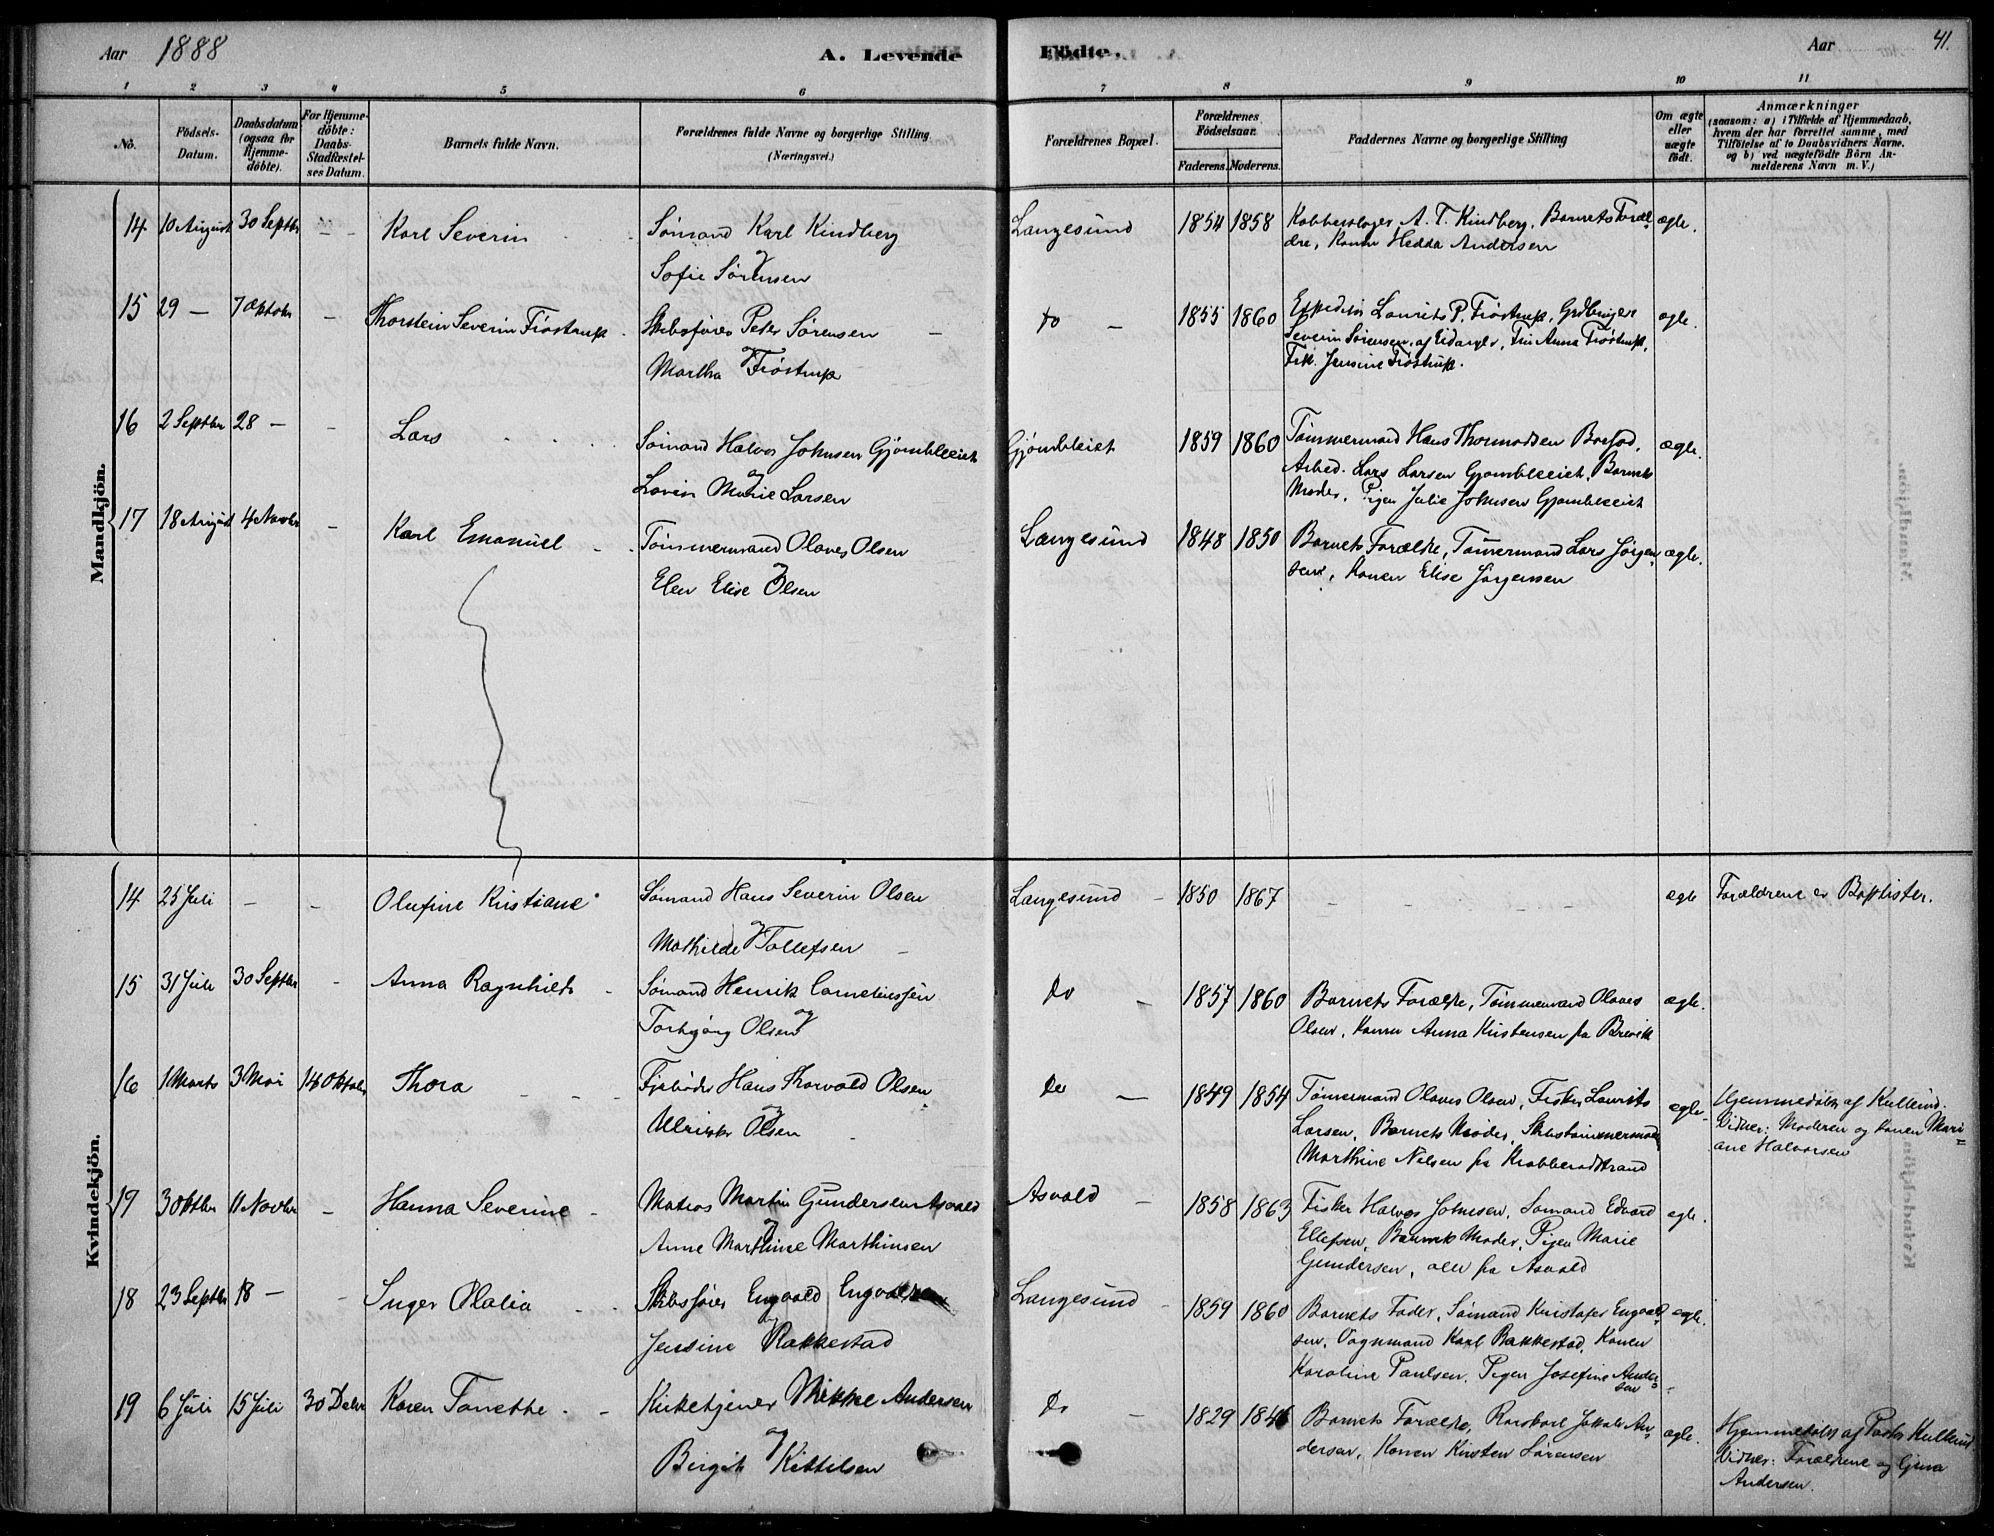 Aar 1888
A. Levende
Födte.
Aar
41.
1 2 3 4 5 6 7 8 9 10 11
No.
Födsels-
Datum.
Daabsdatum
(ogsaa for
Hjemme-
döbte).
For Hjemme-
döbte:
Daabs-
Stadfæstel-
ses Datum.
Barnets fulde Navn.
Forældrenes fulde Navne og borgerlige Stilling
(Næringsvei.)
Forældrenes Bopæl.
Forældrenes
Födselsaar.
Faderens. Moderens.
Faddernes Navne og borgerlige Stilling
Om ægte
eller
uægte
födt.
Anmærkninger
(saasom: a) i Tilfælde af Hjemmedaab,
hvem der har forrettet samme, med
Tilföielse af to Daabsvidners Navne.
og b) ved uægtefödte Börn An-
melderens Navn m. V.)
Mandkjön.
14 10 August 30 Septbr - - Karl Severin Sömand Karl Kindberg Langesund 1854 1858 Kobberslager A. T. Kindberg, Barnets Foræl- ægte.
og
Sofie Sörensen
dre, Konen Hedda Andersen
15 29 - 7 Oktobr - Thorstein Severin Fröstrup Skibsförer Peder Sörensen do - 1855 1860 Expeditör Laurits P. Fröstrup, ægte.
og
Martha Fröstrup
Severin Sörensen af Eidanger, Frk Anna Fröstrup,
Frk. Jensine Fröstrup.
16 2 Septbr 28 - - Lars Sömand Halvor Johnsen Gjömbleiet Gjömbleiet 1859 1860 Tömmermand Hans Thormodsen ægte.
og
Lovise Marie Larsen
Arbed. Lars Larsen Gjömbleiet, Barnets
Moder, Pigen Julie Johnsen Gjömbleiet
17 18 August 4 Novbr - Karl Emanuel Tömmermand Olaves Olsen Langesund 1848 1850 Barnets Forældre, Tömmermand Lars Jörgen- ægte.
og
Elen Elise Olsen
sen, Konen Elise Jörgensen
Kvindekjön.
14 25 Juli - - Olufine Kristiane Sömand Hans Severin Olsen Langesund - 1850 1867 - - - - - ægte Forældrene er Baptister.
og
Mathilde Tollefsen
15 31 Juli 30 Septbr - Anna Ragnhild Sömand Henrik Corneliussen do - 1857 1860 Barnets Forældre, Tömmermand Olaves ægte.
og
Torbjörg Olsen
Olsen, Konen Anna Kristensen fra Brevik
16 1 Marts 3 Mai 14 Oktobr Thora Hans Thorvald Olsen do - 1849 1854 Tömmermand Olaves Olsen, Fisker Laurits ægte. Hjemmedöbt af Kullund.
og
Ulrikke Olsen
Larsen, Barnets Moder, Skibstömmermand
Marthine Nilsen fra Krabberödstrand
Vidner: Moderen og Konen Mari-
ane Halvorsen
17 3 Oktbr 11 Novbr - Hanna Severine Matros Martin Gundersen Asvald Asvald - 1858 1863 Fisker Halvor Johnsen, Sömand Edvard ægte.
og
Anne Marthine Marthinsen
Ellefsen, Barnets Moder, Pigen Marie
Gundersen, alle fra Asvald
18 23 Septbr 18 - - Inger Olalia Skibsförer Engvald Engvaldsen Langesund - 1859 1860 Barnets Fader, Sömand Kristofer Engvald- ægte.
og
Jensine Rakkestad
sen, Vognmand Karl Rakkestad, Konen
Karoline Paulsen, Pigen Josefine Ander-
sen
19 6 Juli 15 Juli 30 Decbr Karen Tonette Kirketjener Mikkel Andersen do - 1829 1846 Barnets Forældre, Jakob An- ægte. Hjemmedöbt af Pastor Kullund.
og
Birgit Kittilsen
dersen, Konen Kirsten Sörensen
Vidner: Forældrene og Gina
Andersen.